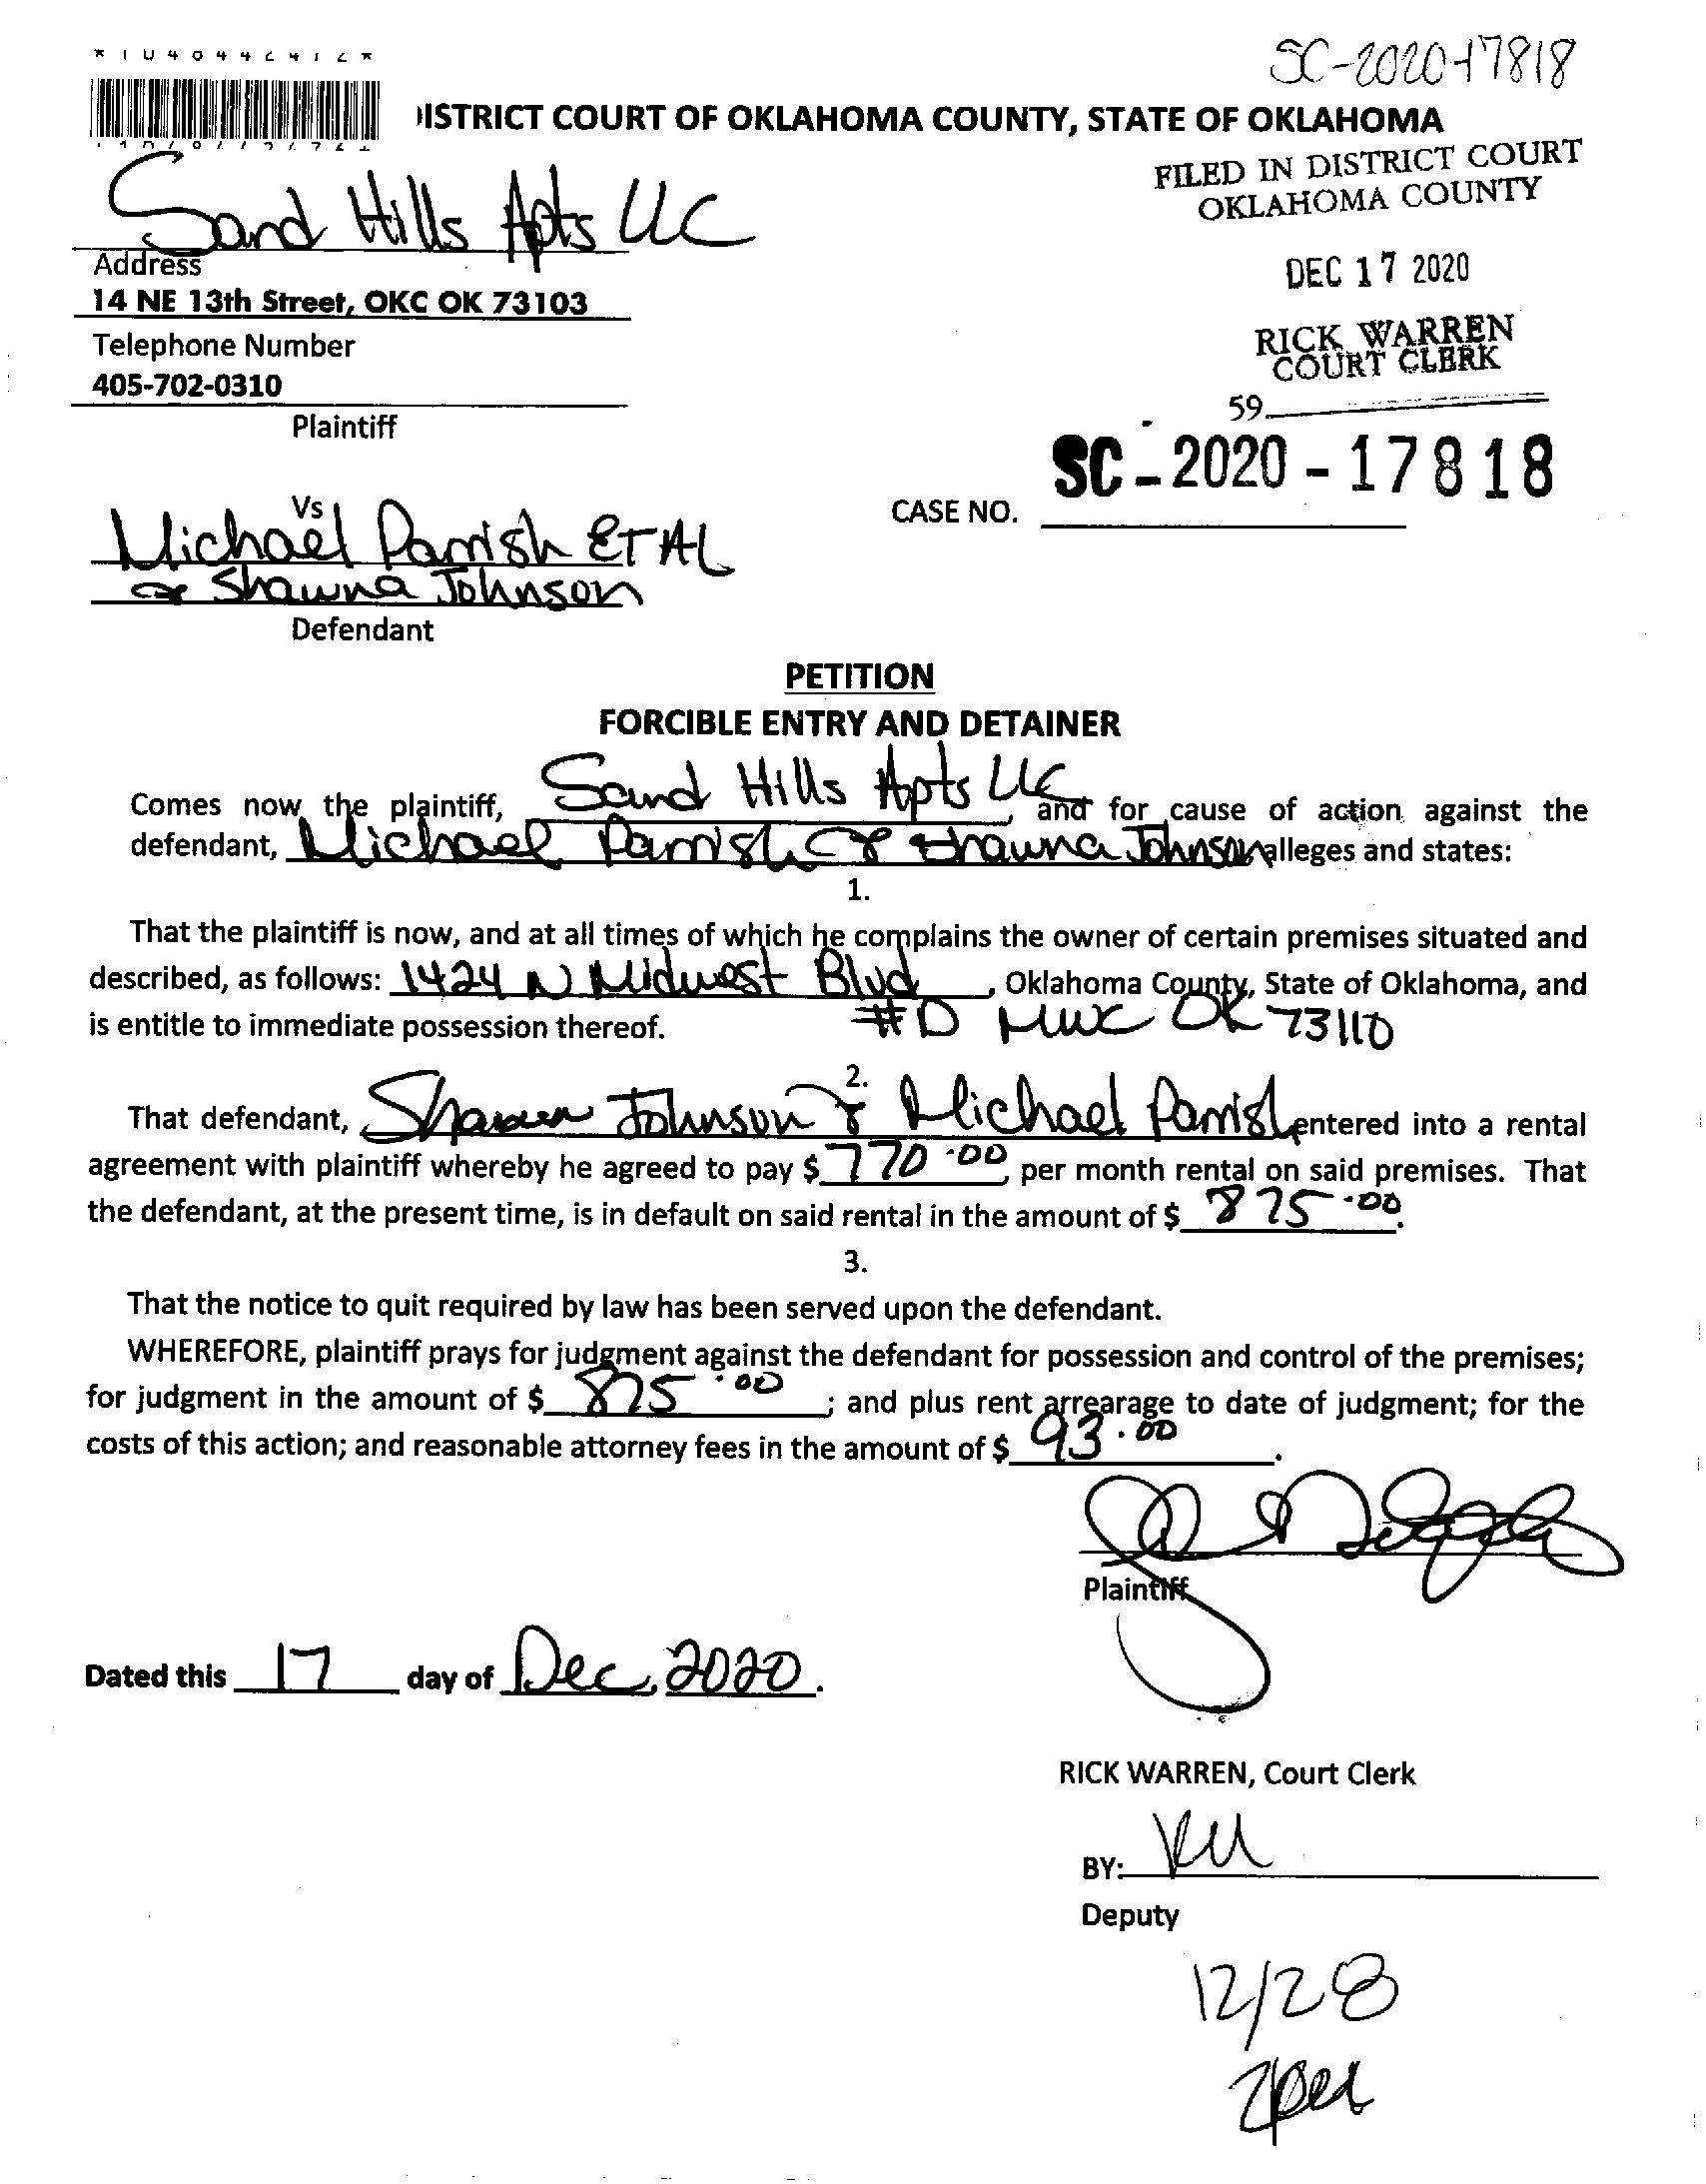 *1040442412*
SC-2020-17818
ISTRICT COURT OF OKLAHOMA COUNTY, STATE OF OKLAHOMA
FILED IN DISTRICT COURT
OKLAHOMA COUNTY
Sand Hills Apts LLC
Address
DEC 17 2020
14 NE 13th Street, OKC OK 73103
RICK WARREN
COURT CLERK
Telephone Number
405-702-0310
59
Plaintiff
SC-2020-17818
CASE NO.
Vs
Michael Parrish ET AL
or Shawna Johnson
Defendant
PETITION
FORCIBLE ENTRY AND DETAINER
Comes now the plaintiff, Sand Hills Apts LLC and for cause of action against the
defendant, Michael Parrish or Shawna Johnson alleges and states:
1.
That the plaintiff is now, and at all times of which he complains the owner of certain premises situated and
described, as follows: 1424 N Midwest Blvd, Oklahoma County, State of Oklahoma, and
is entitle to immediate possession thereof. #D MWC OK 73110
2.
That defendant, Johnson & Michael Parrish entered into a rental
agreement with plaintiff whereby he agreed to pay $ 770.00, per month rental on said premises. That
the defendant, at the present time, is in default on said rental in the amount of $ 875.00.
3.
That the notice to quit required by law has been served upon the defendant.
WHEREFORE, plaintiff prays for judgment against the defendant for possession and control of the premises;
for judgment in the amount of $ 875.00; and plus rent arrearage to date of judgment; for the
costs of this action; and reasonable attorney fees in the amount of $ 93.00.
Plaintiff
Dated this 17 day of Dec, 2020.
RICK WARREN, Court Clerk
BY:
Deputy
12/28